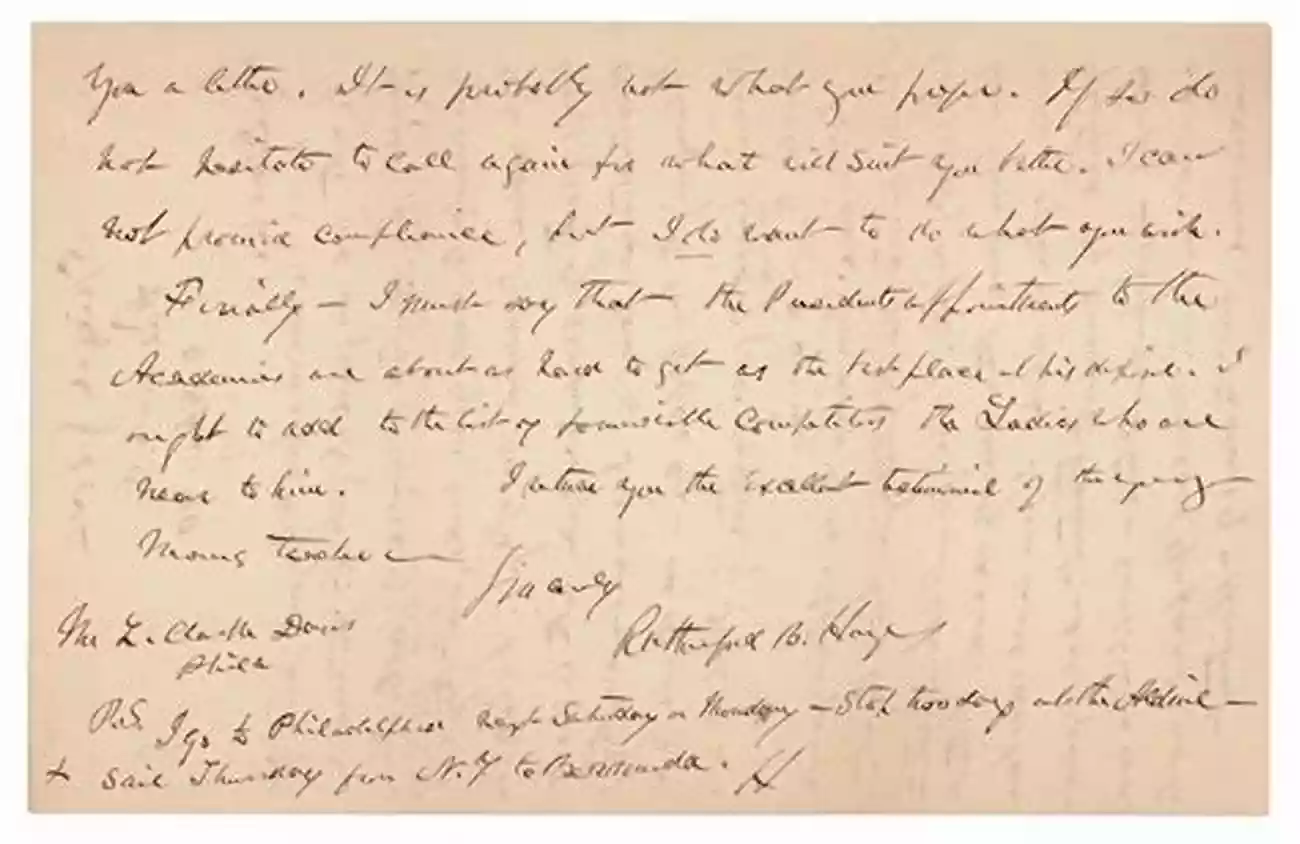 you a letter. It is probably not what you hope. If so do
not hesitate to call again for what will suit you better. I can
not promise compliance, but I do want to do what you wish.
Finally — I must say that the Presidents appointments to the
Academies are about as hard to get as the best place at his disposal. I
ought to add to the list of formidable Competitors the Ladies who are
near to him. I return you the excellent testimonial of the young
mans teacher —
Sincerely
Rutherford B. Hayes
Mr L. Clarke Davis
Phila
P.S. I go to Philadelphia next Saturday or Monday — Stop two days at the Aldine —
+ sail Thursday from N.Y to Bermuda. H